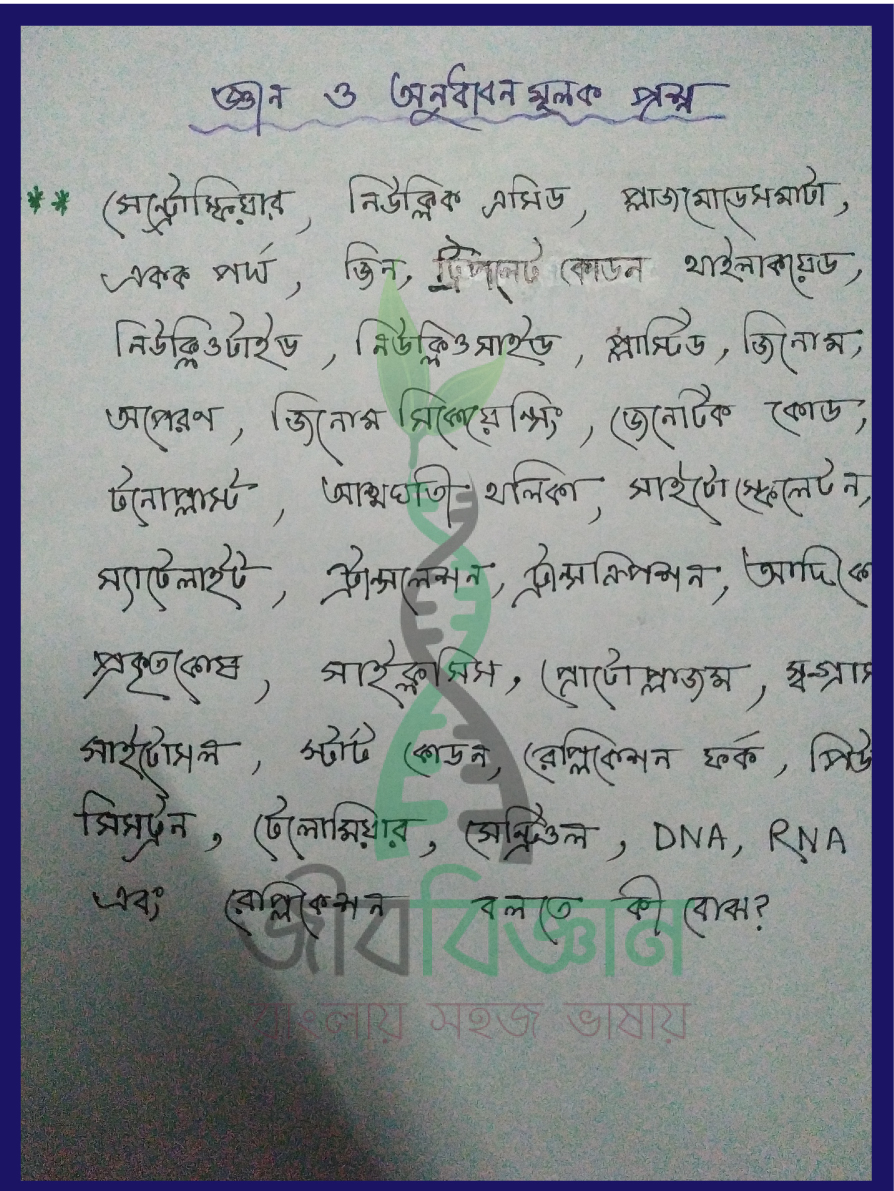 জ্ঞান ও অনুধাবনমূলক প্রশ্ন
** সেন্ট্রোস্ফিয়ার, নিউক্লিক এসিড, প্লাজমোডেসমাটা,
একক পর্দা, জিন, ট্রিপলেট কোডন থাইলাকয়েড,
নিউক্লিওটাইড, নিউক্লিওসাইড, প্লাস্টিড, জিনোম,
অপেরণ, জিনোম সিকোয়েন্সিং, জেনেটিক কোড,
টনোপ্লাস্ট, আত্মঘাতী থলিকা, সাইটোস্কেলেটন,
স্যাটেলাইট, ট্রান্সলেশন, ট্রান্সক্রিপশন, আদিকো
প্রকৃতকোষ, সাইক্লোসিস, প্রোটোপ্লাজম, স্ব-গ্রাস
সাইটোসল, স্টার্ট কোডন, রেপ্লিকেশন ফর্ক, পিউ
সিসট্রন, টেলোমিয়ার, সেন্ট্রিওল, DNA, RNA
এবং রেপ্লিকেশন বলতে কী বোঝ?
জীববিজ্ঞান
বাংলায় সহজ ভাষায়